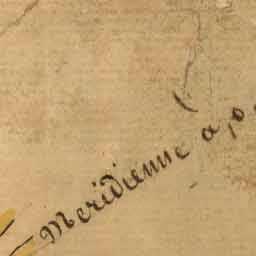 Meridienne a